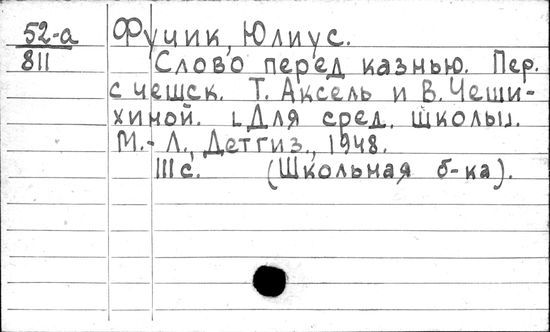 52-а Фучик, Юлиус.
811 Слово перед казнью. Пер.
с чешск. Т. Аксель и В. Чеши-
хиной. [Для сред. школы].
М.-Л., Детгиз., 1948.
111 с. (Школьная б-ка).